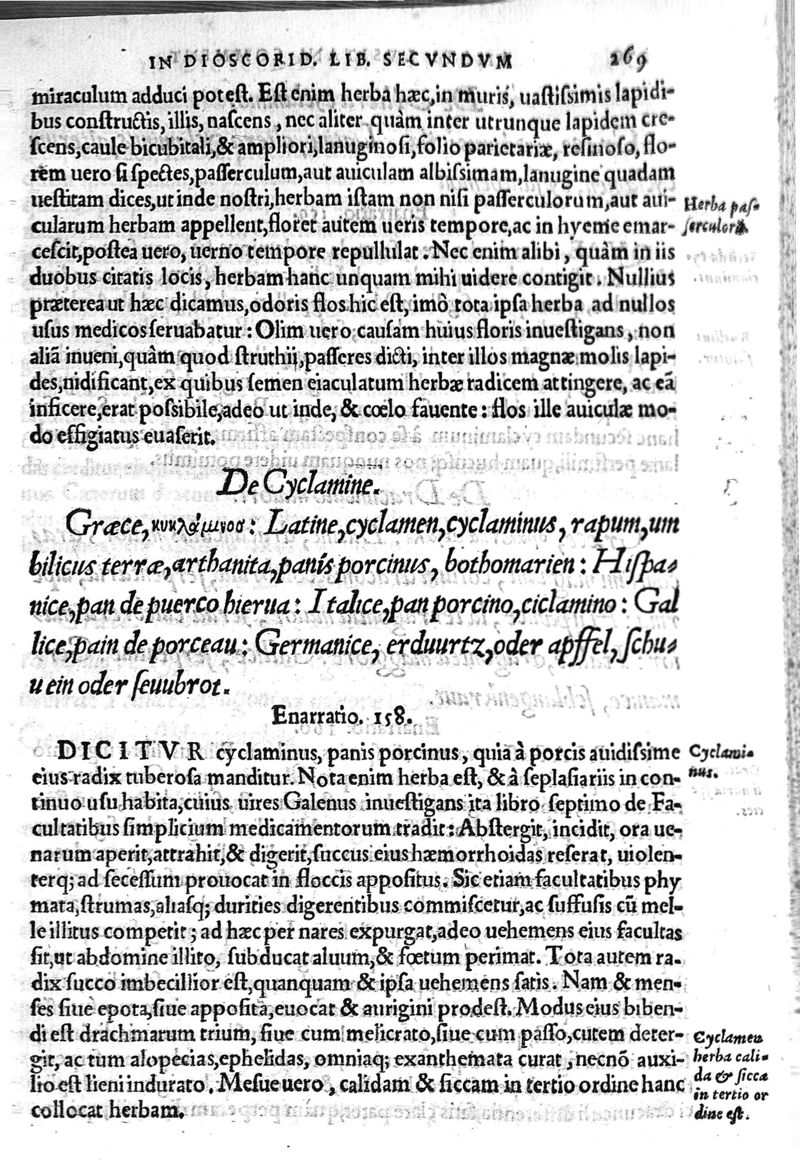 IN DIOSCORID. LIB. SECVNDVM 269
miraculum adduci potest. Est enim herba hæc, in muris, uastissimis lapidi-
bus constructis, illis, nascens, nec aliter quàm inter utrunque lapidem cre-
scens, caule bicubitali, & ampliori, lanuginosi, folio parietariæ, resinoso, flo-
rem uero si spectes, passerculum, aut auiculam albissimam, lanugine quadam
uestitam dices, ut inde nostri, herbam istam non nisi passerculorum, aut aui-
cularum herbam appellent, floret autem ueris tempore, ac in hyeme emar-
cescit, postea uero, uerno tempore repullulat. Nec enim alibi, quàm in iis
duobus citatis locis, herbam hanc unquam mihi uidere contigit. Nullius
præterea ut hæc dicamus, odoris flos hic est, imò tota ipsa herba ad nullos
usus medicos seruabatur: Olim uero causam huius floris inuestigans, non
aliã inueni, quàm quod struthij, passeres dicti, inter illos magnæ molis lapi-
des, nidificant, ex quibus semen eiaculatum herbæ radicem attingere, ac eã
inficere, erat possibile, adeo ut inde, & cœlo fauente: flos ille auiculæ mo-
do effigiatus euaserit.
Herba pas-
serculorũ.
De Cyclamine.
Græce, κυκλάμινοσ: Latine, cyclamen, cyclaminus, rapum, um
bilicus terræ, arthanita, panis porcinus, bothomarien: Hispa-
nice, pan de puerco hierua: Italice, pan porcino, ciclamino: Gal
lice, pain de porceau: Germanice, erduurtz, oder apffel, schu-
uein oder seuubrot.
Enarratio. 158.
DICITVR cyclaminus, panis porcinus, quia à porcis auidissime
eius radix tuberosa manditur. Nota enim herba est, & à seplasiariis in con-
tinuo usu habita, cuius uires Galenus inuestigans ita libro septimo de Fa-
cultatibus simplicium medicamentorum tradit: Abstergit, incidit, ora ue-
narum aperit, attrahit, & digerit, succus eius hæmorrhoidas reserat, uiolen-
terq; ad secessum prouocat in floccis appositus. Sic etiam facultatibus phy
mata, strumas, aliasq; durities digerentibus commiscetur, ac suffusis cũ mel-
le illitus competit; ad hæc per nares expurgat, adeo uehemens eius facultas
sit, ut abdomine illito, subducat aluum, & fœtum perimat. Tota autem ra-
dix succo imbecillior est, quanquam & ipsa uehemens satis. Nam & men-
ses siue epota, siue apposita, euocat & aurigini prodest. Modus eius biben-
di est drachmarum trium, siue cum melicrato, siue cum passo, cutem deter-
git, ac tum alopecias, ephelidas, omniaq; exanthemata curat, necnõ auxi-
lio est lieni indurato. Mesue uero, calidam & siccam in tertio ordine hanc
collocat herbam.
Cyclami-
nus.
Cyclamen
herba cali-
da & sicca
in tertio or
dine est.